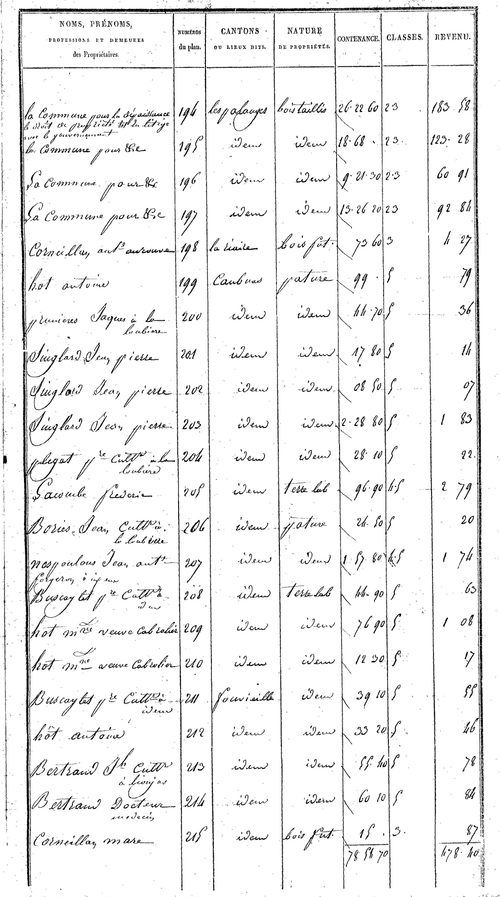 NOMS, PRÉNOMS, PROFESSIONS ET DEMEURES des Propriétaires. NUMÉROS du plan. CANTONS OU LIEUX DITS. NATURE DE PROPRIÉTÉS. CONTENANCE. CLASSES. REVENU.
la Commune pour la dépaissance 194 les palanges bois taillis 26 22 60 23 183 58
le droit de propriété en litige
avec le gouvernement
la Commune pour &c 195 idem idem 18 68 . 23 123 28
La Commune pour &c 196 idem idem 9 21 30 23 60 91
La Commune pour &c 197 idem idem 13 26 20 23 92 84
Corneillan ant. 198 bois fut. 73 60 3 4 27
hot antoine 199 pature 99 . 5 79
prunieres Jaques à la 200 idem idem 44 70 5 36
loubiere
Singlard Jean pierre 201 idem idem 17 80 5 14
Singlard Jean pierre 202 idem idem 08 50 5 07
Singlard Jean pierre 203 idem idem 2 28 80 5 1 83
plegat pre Cultr à la 204 idem idem 28 10 5 22
loubiere
Lacombe frederic 205 idem terre lab 96 90 4.5 2 79
Bories Jean Cultr à 206 idem pature 24 50 5 20
la loubiere
nespoulous Jean ant. 207 idem idem 1 57 80 4.5 1 74
forgeron à
Buscaylet pre Cultr à 208 idem terre lab 44 90 5 63
idem
hot mne veuve Cabrolier 209 idem idem 76 90 5 1 08
hot mne veuve Cabrolier 210 idem idem 12 30 5 17
Buscaylet pre Cultr à 211 fonvieille idem 39 10 5 55
idem
hot antoine 212 idem idem 33 20 5 46
Bertrand Jh Cultr 213 idem idem 55 40 5 78
à lioujas
Bertrand Docteur 214 idem idem 60 10 5 84
medecin
Corneillan marc 215 idem bois fut. 15 . 3. 87
78 54 70 478 40